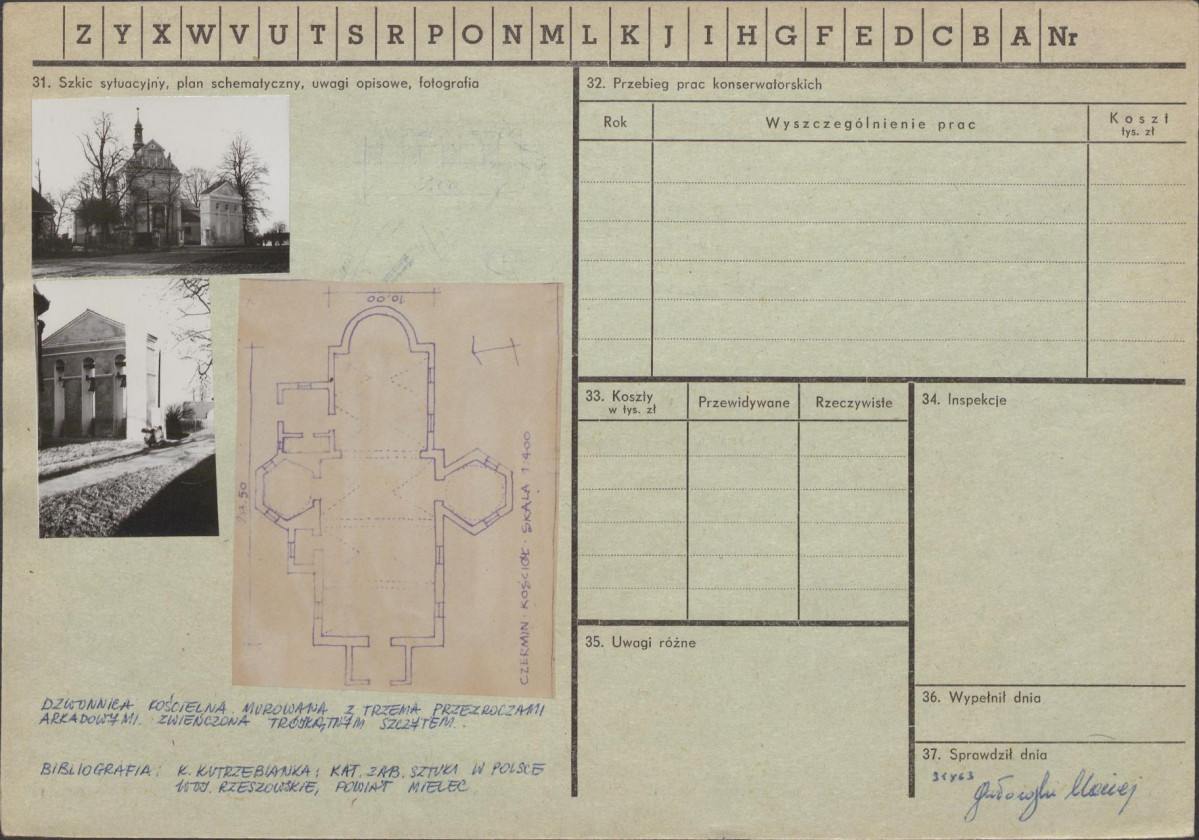 Z Y X W V U T S R P O N M L K J I H G F E D C B A Nr
31. Szkic sytuacyjny, plan schematyczny, uwagi opisowe, fotografia
10.00
CZERMIN · KOŚCIÓŁ · SKALA 1:400
DZWONNICA KOŚCIELNA. MUROWANA Z TRZEMA PRZEZROCZAMI
ARKADOWYMI. ZWIEŃCZONA TRÓJKĄTNYM SZCZYTEM.
BIBLIOGRAFIA: K. KUTRZEBIANKA: KAT. ZAB. SZTUKI W POLSCE
WOJ. RZESZOWSKIE, POWIAT MIELEC
32. Przebieg prac konserwatorskich
Rok
Wyszczególnienie prac
Koszt
tys. zł
33. Koszty
w tys. zł
Przewidywane
Rzeczywiste
34. Inspekcje
35. Uwagi różne
36. Wypełnił dnia
37. Sprawdził dnia
Maciej